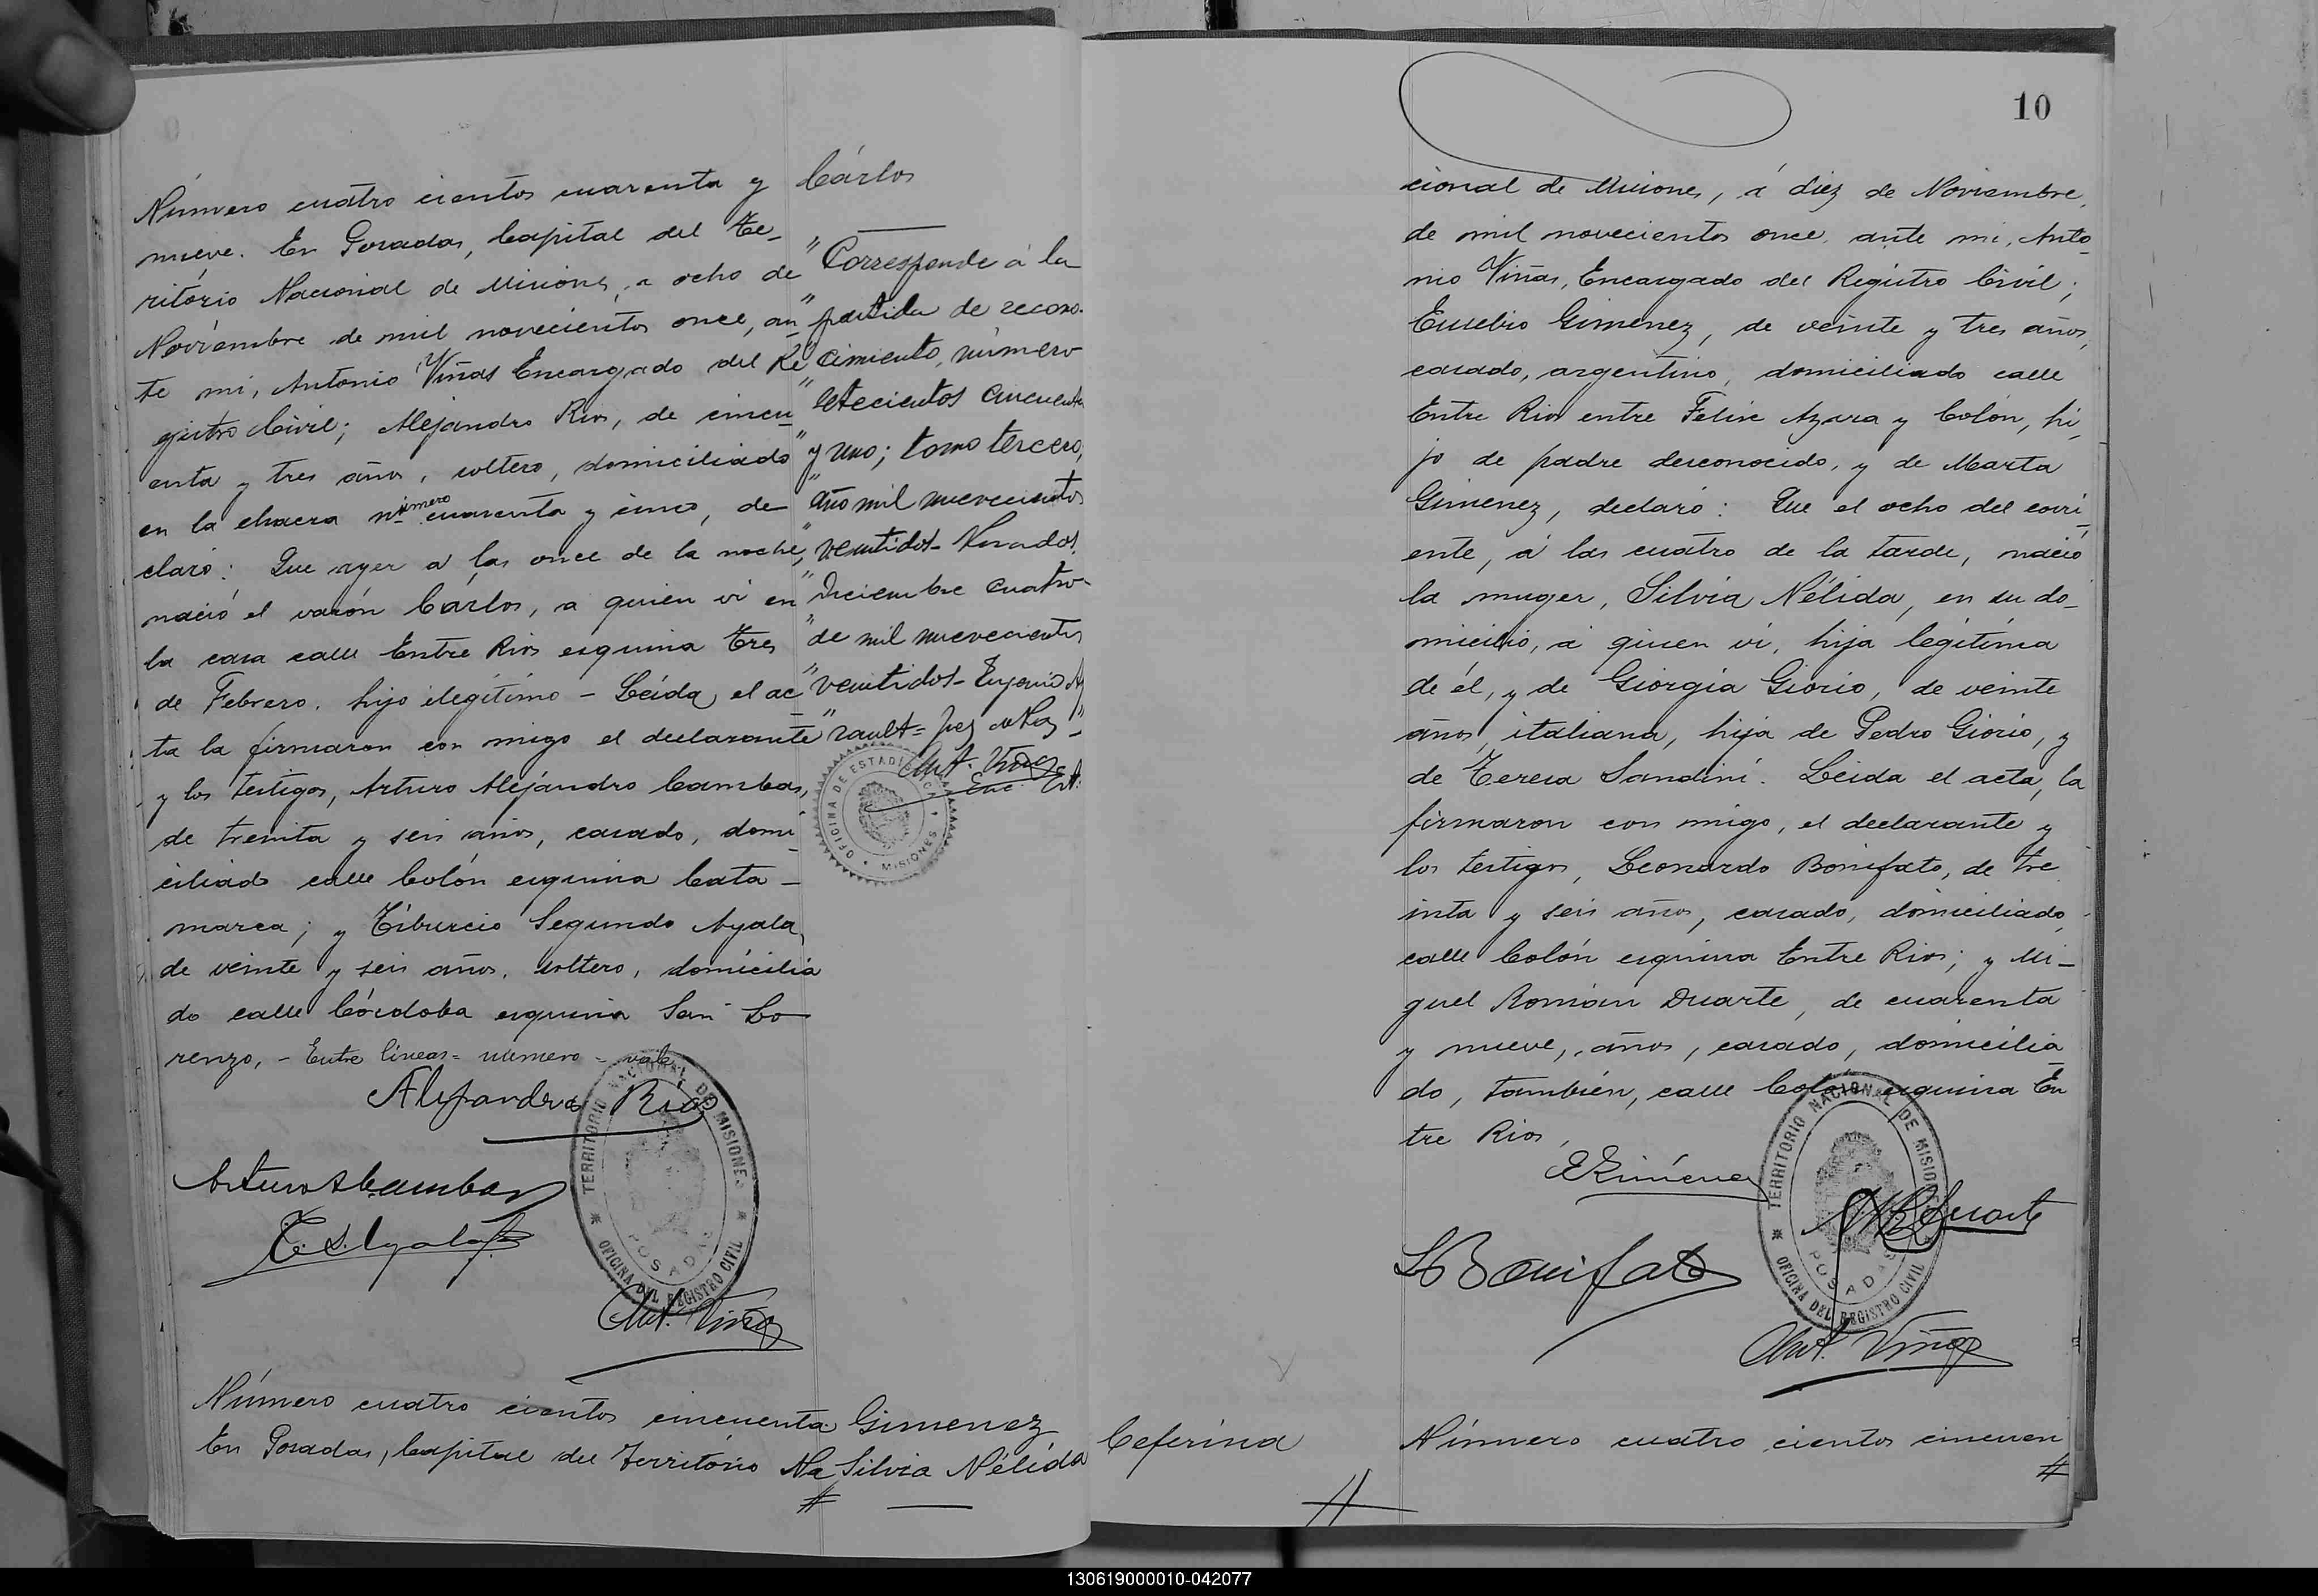 Número cuatro cientos cuarenta y
nueve. En Posadas, Capital del Te_
ritório Nacional de Misiones, a ocho de
Noviembre de mil novecientos once, an_
te mi, Antonio Viñas Encargado del Re
gistro Civil; Alejandro Rios, de cincu
enta y tres años, soltero, domiciliado
en la chacra número cuarenta y cinco, de
claró: Que ayer a las once de la noche,
nació el varón Cárlos, a quien vi en
la casa calle Entre Rios esquina Tres
de Febrero. hijo ilegítimo - Leida el ac_
ta la firmaron con migo el declarante
y los testigos, Arturo Alejandro Cambas,
de treinta y seis años, casado, domi_
ciliado calle Colón esquina Cata_
marca; y Tiburcio Segundo Ayala,
de veinte y seis años, soltero, domicilia
do calle Córdoba esquina San Lo
renzo, - Entre líneas = número - vale
Alejandro Rios
Arturo A Cambas
T. S. Ayala
TERRITORIO NACIONAL DE MISIONES
POSADAS
OFICINA DEL REGISTRO CIVIL
Ant. Viñas
Cárlos
"Corresponde á la
"partida de recono-
"cimiento, número
"setecientos cincuenta
"y uno; tomo tercero,
"año mil nuevecientos
"veintidos- Posadas,
"Diciembre cuatro
"de mil nuevecientos
"veintidos- Eugenio
"rault = Juez de Paz"
Ant. Viñas
Enc. Est.
OFICINA DE ESTADISTICA
MISIONES
Número cuatro cientos cincuenta
En Posadas, Capital del Território Na
#
Gimenez
Silvia Nélida
10
cional de Misiones, á diez de Noviembre,
de mil novecientos once, ante mi, Anto
nio Viñas, Encargado del Registro Civil;
Eusebio Gimenez, de veinte y tres años,
casado, argentino, domiciliado calle
Entre Rios entre Felix Azara y Colón, hi_
jo de padre desconocido, y de Marta
Gimenez, declaró: Que el ocho del corri_
ente, á las cuatro de la tarde, nació
la muger, Silvia Nélida, en su do_
micilio, a quien vi, hija legítima
de él, y de Giorgia Giorio, de veinte
años, italiana, hija de Pedro Giorio, y
de Teresa Sandini. Leida el acta, la
firmaron con migo, el declarante y
los testigos, Leonardo Bonifato, de tre
inta y seis años, casado, domiciliado,
calle Colón esquina Entre Rios; y Mi_
guel Román Duarte, de cuarenta
y nueve, años, casado, domicilia
do, también, calle Colón esquina En
tre Rios,
E Riménez
M R Duarte
L Bonifato
TERRITORIO NACIONAL DE MISIONES
POSADAS
OFICINA DEL REGISTRO CIVIL
Ant. Viñas
Ceferina
#
Número cuatro cientos cincuen
#
130619000010-042077